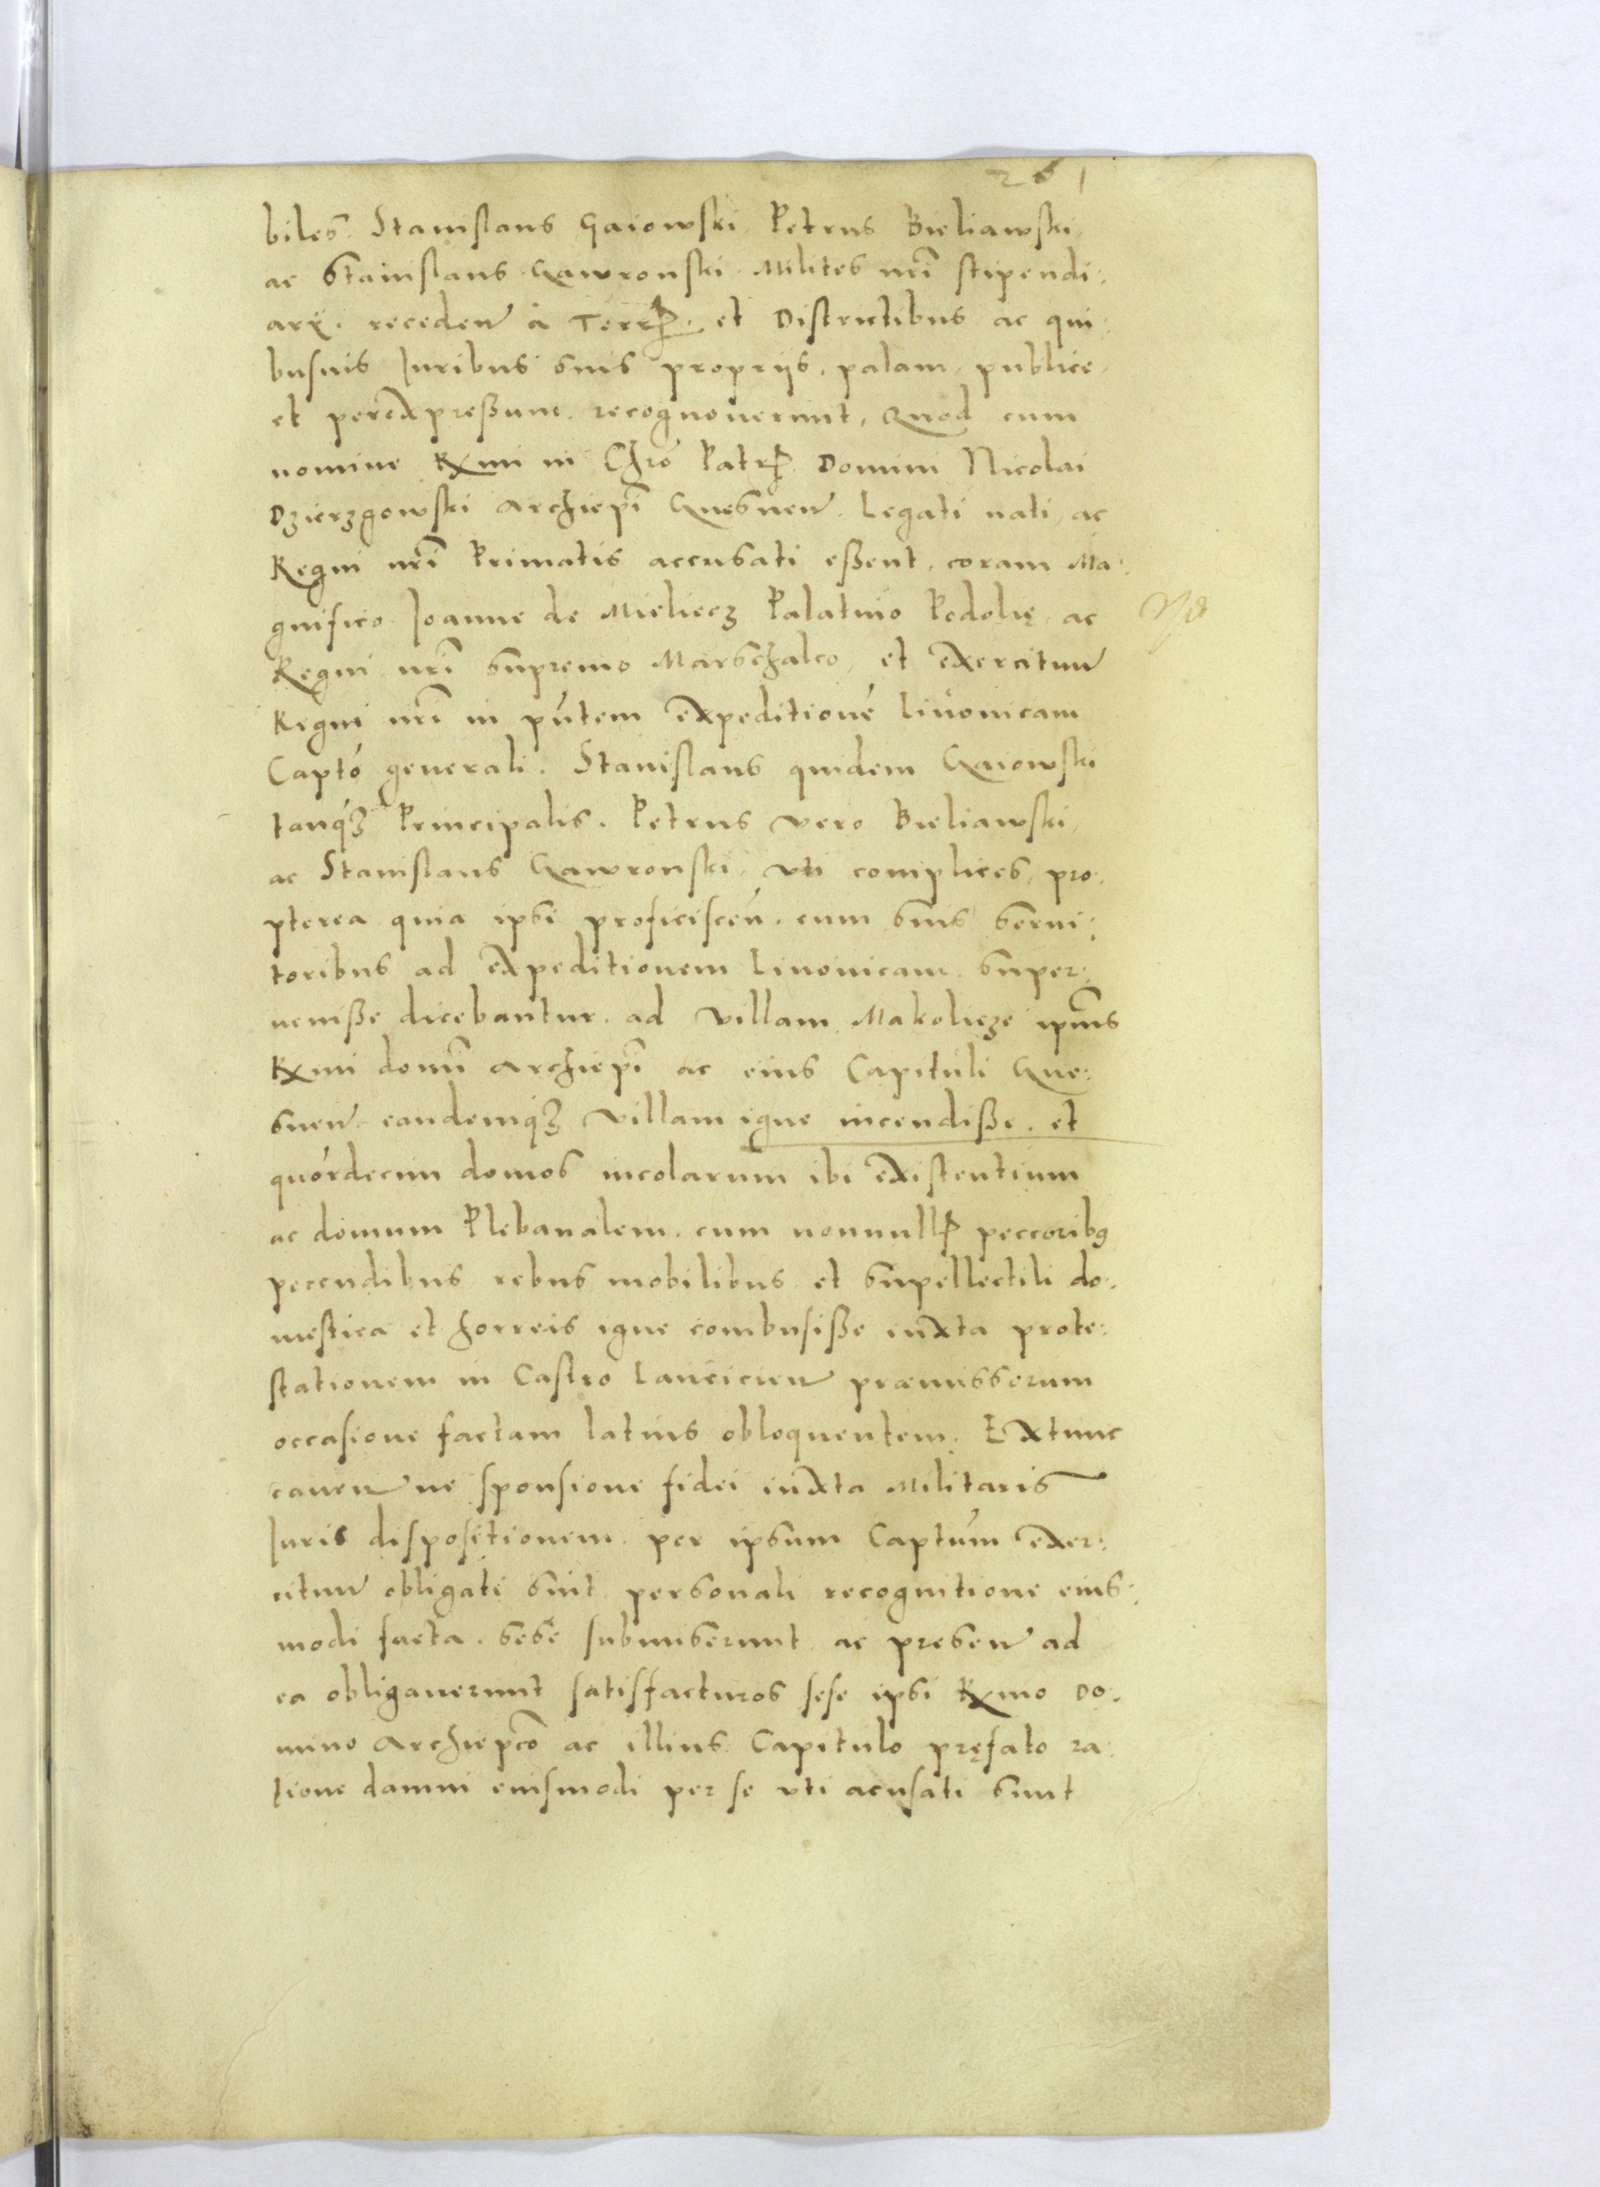 261
biles. Stanislaus Gaiowski Petrus Bieliawski,
ac Stanislaus Gawronski. Milites nrĩ stipendi:
arÿ. receden̄ à Terr̄. et Districtibus ac qui:
busuis Iuribus suis proprÿs, palam, publice,
et per expreßum. recognouerunt, Quod cum
nomine Rx̄mi in Chrõ Patr̄ Domini Nicolai
Dzierzgowski Archiepĩ Gnesnen̄. Legati nati, ac
Regni nrĩ Primatis accusati eßent, coram Ma:
gnifico Ioanne de Mieliecz Palatino Podolię, ac
Regni nrĩ supremo Marschalco, et exercituũ
Regni nrĩ in pñtem expeditionẽ Liuonicam
Captõ generali. Stanislaus quidem Gaiowski
tanq̃ʒ Principalis. Petrus vero Bieliawski,
ac Stanislaus Gawronski, vti complices, pro:
pterea quia ipsi proficisceñ. cum suis serui:
toribus ad expeditionem Liuonicam, super:
ueniße dicebantur. ad villam Makolicze ipiũs
Rx̄mi domĩ Archiepĩ ac eius Capituli Gne:
snen̄. eandemq̃ʒ villam igne incendiße. et
quõrdecim domos incolarum ibi existentium
ac domum Plebanalem. cum nonnull̄ peccoribꝯ
peccudibus rebus mobilibus et suppellectili do:
mestica et horreis igne combusiße iuxta prote:
stationem in Castro Lancicien̄ præmissorum
occasione factam latius obloquentem. Extunc
cauen̄ ne sponsione fidei iuxta Militaris
Iuris dispositionem. per ipsum Captũm exer:
cituũ obligati sint personali recognitione eius:
modi facta. sese submiserunt ac presen̄ ad
ea obligauerunt satisfacturos sese ipsi Rx̄mo Do:
mino Archiepcõ ac illius Capitulo pręfato ra:
tione damni eiusmodi per se vti acusati sunt